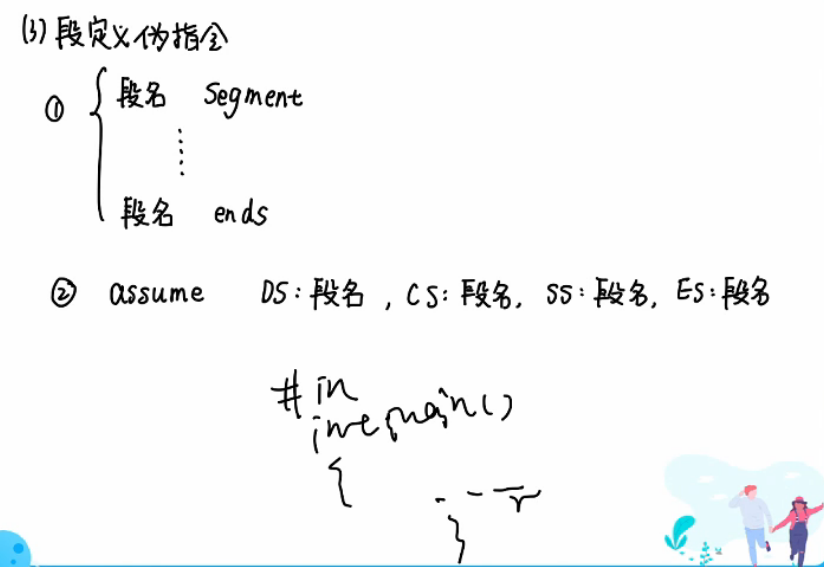 (3) 段定义伪指令
① { 段名 Segment
⋮
段名 ends
② assume DS:段名, CS:段名, SS:段名, ES:段名
#in
int main()
{
}